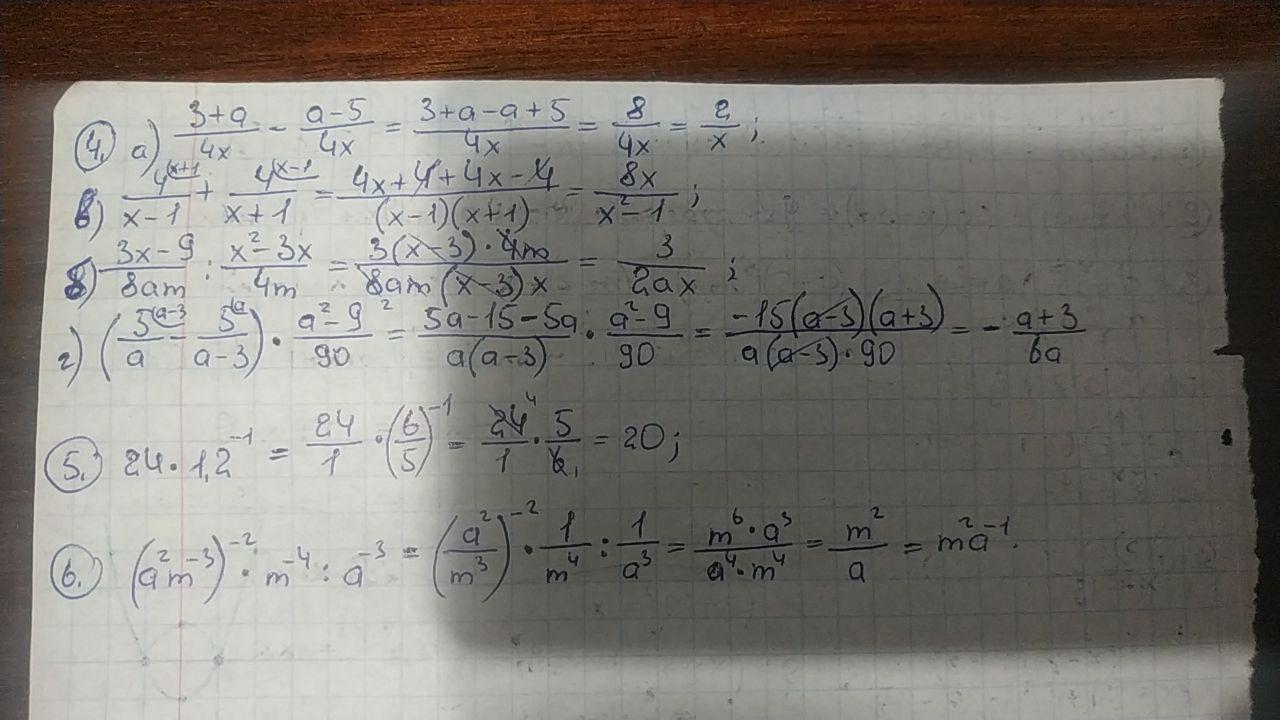 4. а) (3+a)/(4x) - (a-5)/(4x) = (3+a-a+5)/(4x) = 8/(4x) = 2/x;
б) 4^(x+1)/(x-1) + 4^(x-1)/(x+1) = (4x+4+4x-4)/((x-1)(x+1)) = 8x/(x²-1);
в) (3x-9)/(8am) : (x²-3x)/(4m) = (3(x-3)·4m)/(8am(x-3)x) = 3/(2ax);
г) (5^(a-3)/a - 5^a/(a-3)) · (a²-9)/90 ² = (5a-15-5a)/(a(a-3)) · (a²-9)/90 = (-15(a-3)(a+3))/(a(a-3)·90) = -(a+3)/(6a)
5. 24·1,2⁻¹ = 24/1 · (6/5)⁻¹ = 24⁴/1 · 5/6₁ = 20;
6. (a²m⁻³)⁻² · m⁻⁴ : a⁻³ = (a²/m³)⁻² · 1/m⁴ : 1/a³ = (m⁶·a³)/(a⁴·m⁴) = m²/a = m²a⁻¹.